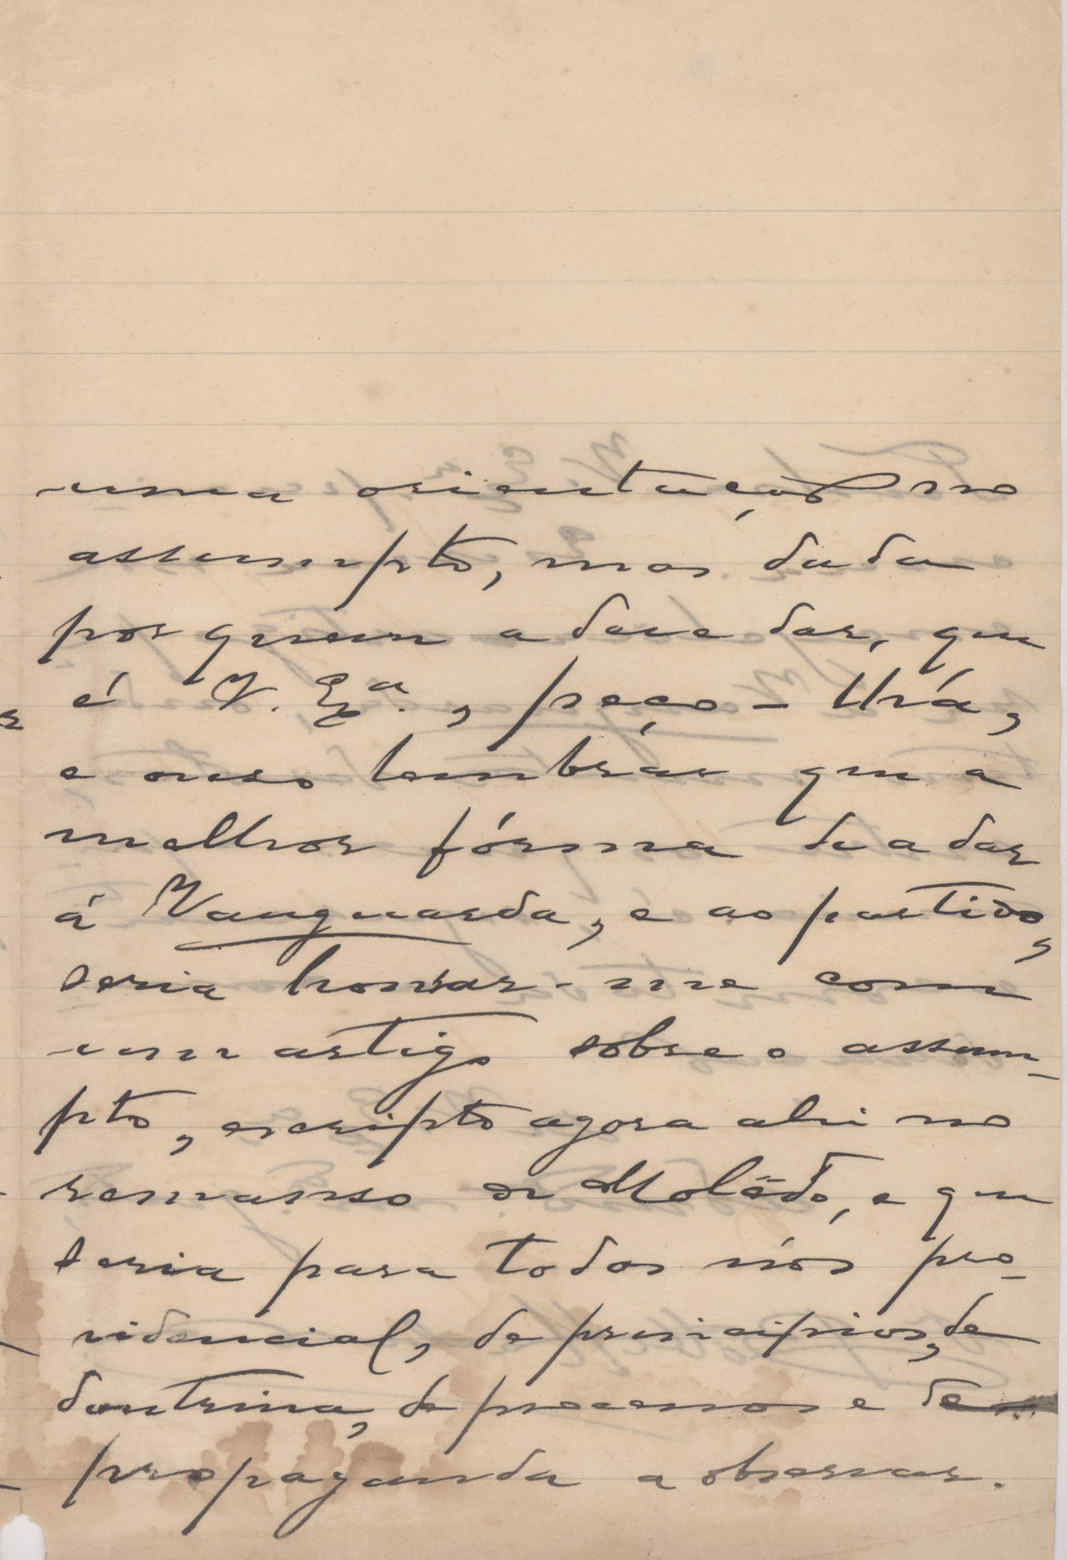 uma orientação no
assumpto, mas dada
por quem a deve dar, que
é V. Ex.ª, peço-lh'a,
e ouso lembrar que a
melhor fórma de a dar
á Vanguarda, e ao partido,
seria honrar-me com
um artigo sobre o assum-
pto, escripto agora ahi no
remanso de Molêdo, e que
seria para todos nós pro-
videncial, de principios, de
doutrina, de processos e de
propaganda a observar.